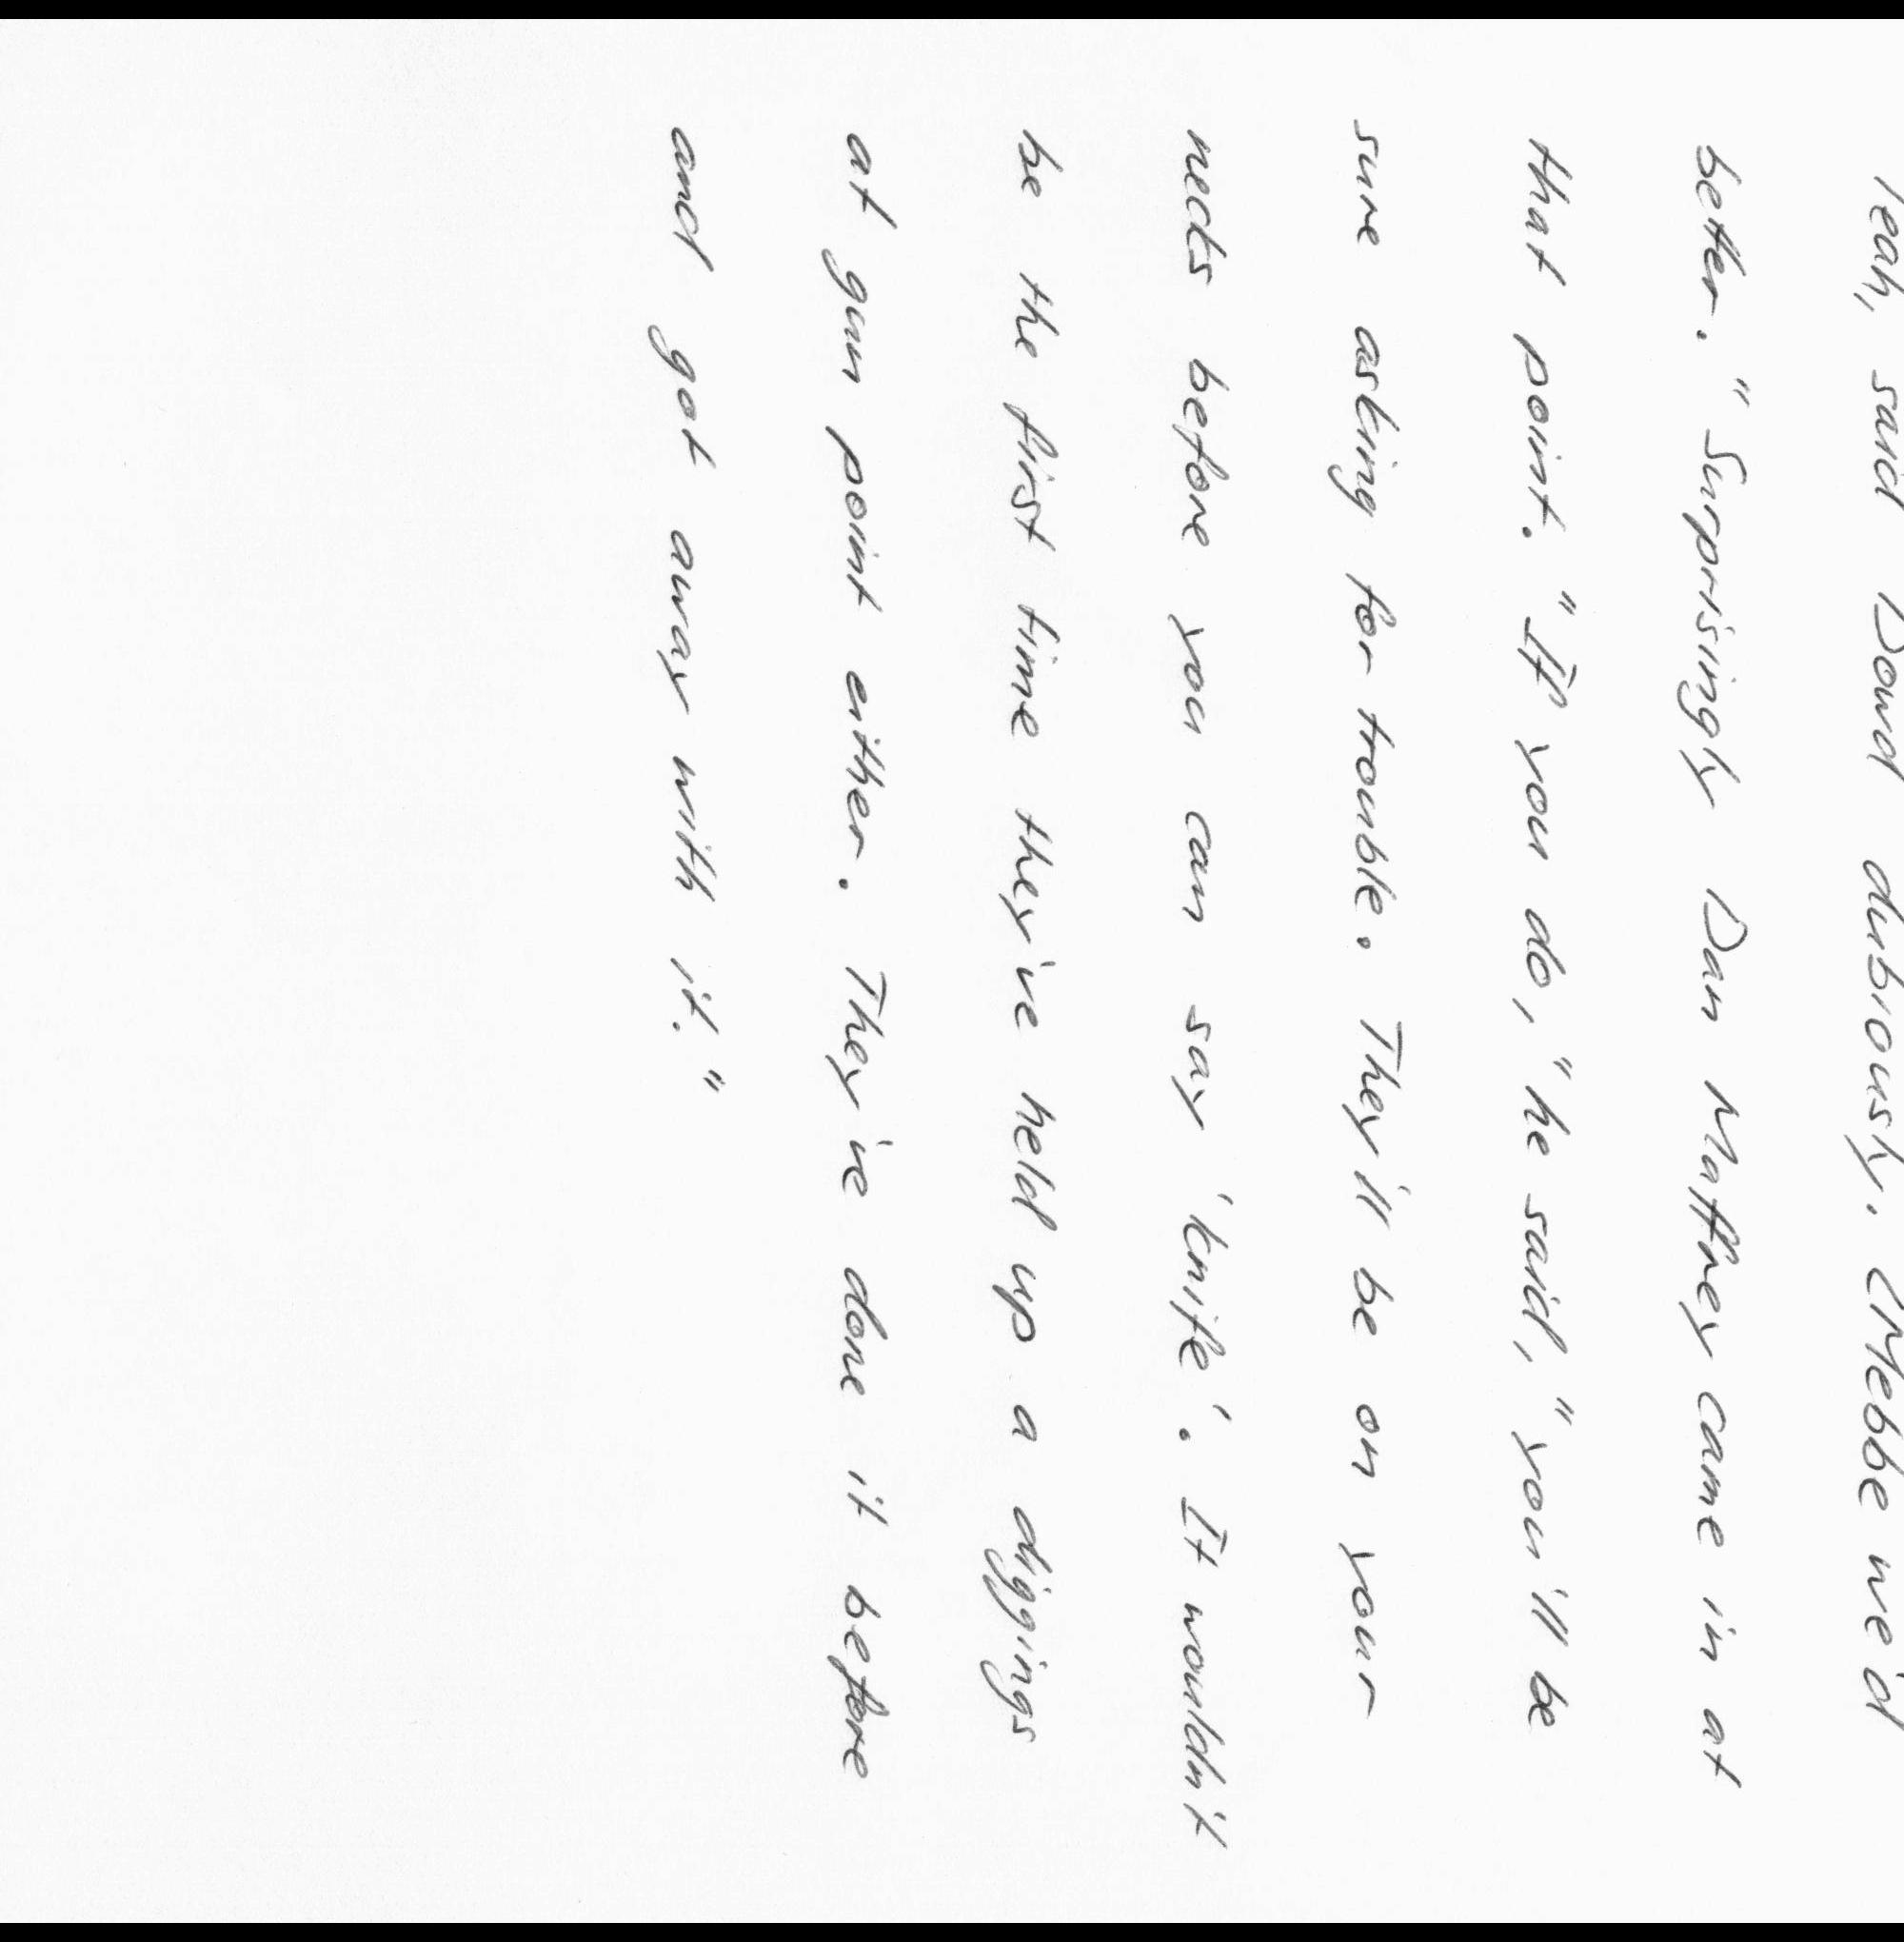 Yeah, said Dowd dubiously. (Mebbe we'd
better." Surprisingly Dan Maffrey came in at
that point. "If you do," he said, "you'll be
sure asking for trouble. They'll be on your
necks before you can say 'knife'. It wouldn't
be the first time they've held up a diggings
at gun point either. They've done it before
and got away with it."